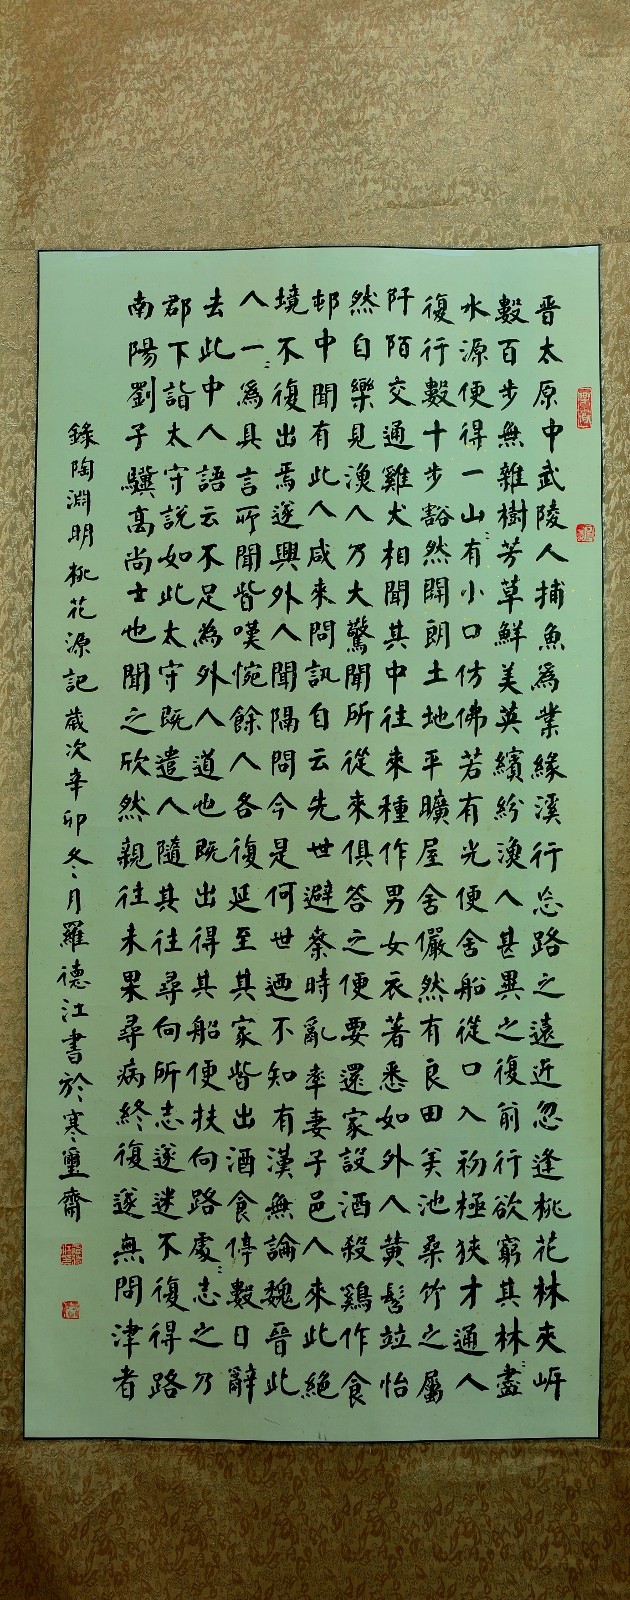 晋太原中武陵人捕魚為業緣溪行忘路之遠近忽逢桃花林夾岸
數百步無雜樹芳草鮮美英繽紛漁人甚異之復前行欲窮其林〻盡
水源便得一山〻有小口仿佛若有光便舍船從口入初極狹才通人
復行數十步豁然開朗土地平曠屋舍儼然有良田美池桑竹之屬
阡陌交通雞犬相聞其中往來種作男女衣著悉如外人黃髫竝怡
然自樂見漁人乃大驚聞所從來俱答之便要還家設酒殺鷄作食
邨中聞有此人咸來問訊自云先世避秦時亂率妻子邑人來此絕
境不復出焉遂與外人聞隔問今是何世迺不知有漢無論魏晉此
人一〻為具言所聞皆嘆惋餘人各復延至其家皆出酒食停數日辭
去此中人語云不足為外人道也既出得其船便扶向路處〻志之乃
郡下詣太守說如此太守既遣人隨其往尋向所志遂迷不復得路
南陽劉子驥高尚士也聞之欣然親往未果尋病終復遂無問津者
錄陶淵明桃花源記歲次辛卯冬月羅德江書於寒璽齋